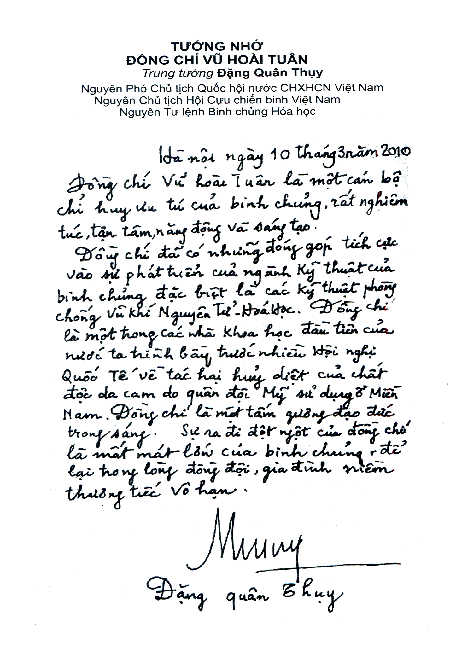 TƯỞNG NHỚ
ĐỒNG CHÍ VŨ HOÀI TUÂN
Trung tướng Đặng Quân Thụy
Nguyên Phó Chủ tịch Quốc hội nước CHXHCN Việt Nam
Nguyên Chủ tịch Hội Cựu chiến binh Việt Nam
Nguyên Tư lệnh Binh chủng Hóa học
Hà nội ngày 10 tháng 3 năm 2010
Đồng chí Vũ hoài Tuân là một cán bộ
chỉ huy ưu tú của binh chủng, rất nghiêm
túc, tận tâm, năng động và sáng tạo.
Đồng chí đã có những đóng góp tích cực
vào sự phát triển của ngành Kỹ thuật của
binh chủng đặc biệt là các Kỹ thuật phòng
chống Vũ Khí Nguyên Tử-Hoá Học. Đồng chí
là một trong các nhà Khoa học đầu tiên của
nước ta trình bầy trước nhiều Hội nghị
Quốc Tế về tác hại huỷ diệt của chất
độc da cam do quân đội Mỹ sử dụng ở Miền
Nam. Đồng chí là một tấm gương đạo đức
trong sáng. Sự ra đi đột ngột của đồng chí
là mất mát lớn của binh chủng, để
lại trong lòng đồng đội, gia đình niềm
thương tiếc vô hạn.
Đặng quân Thụy